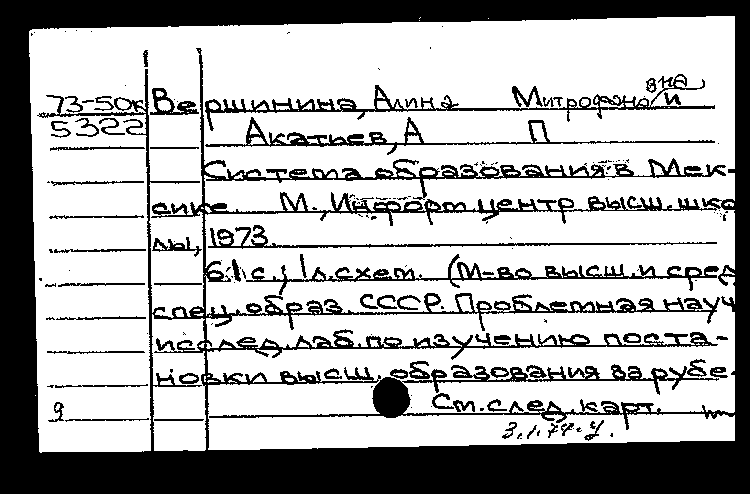 73-50к Вершинина, Алина Митрофановна и
5322 Акатьев, А П
Система образования в Мек-
сике. М., Информ. центр высш. шко
лы, 1973.
61 с.; 1 л. схем. (М-во высш. и сред
спец. образ. СССР. Проблемная науч
исслед. лаб. по изучению поста-
новки высш. образования за рубе-
9 См. след. карт.
3.1.74.